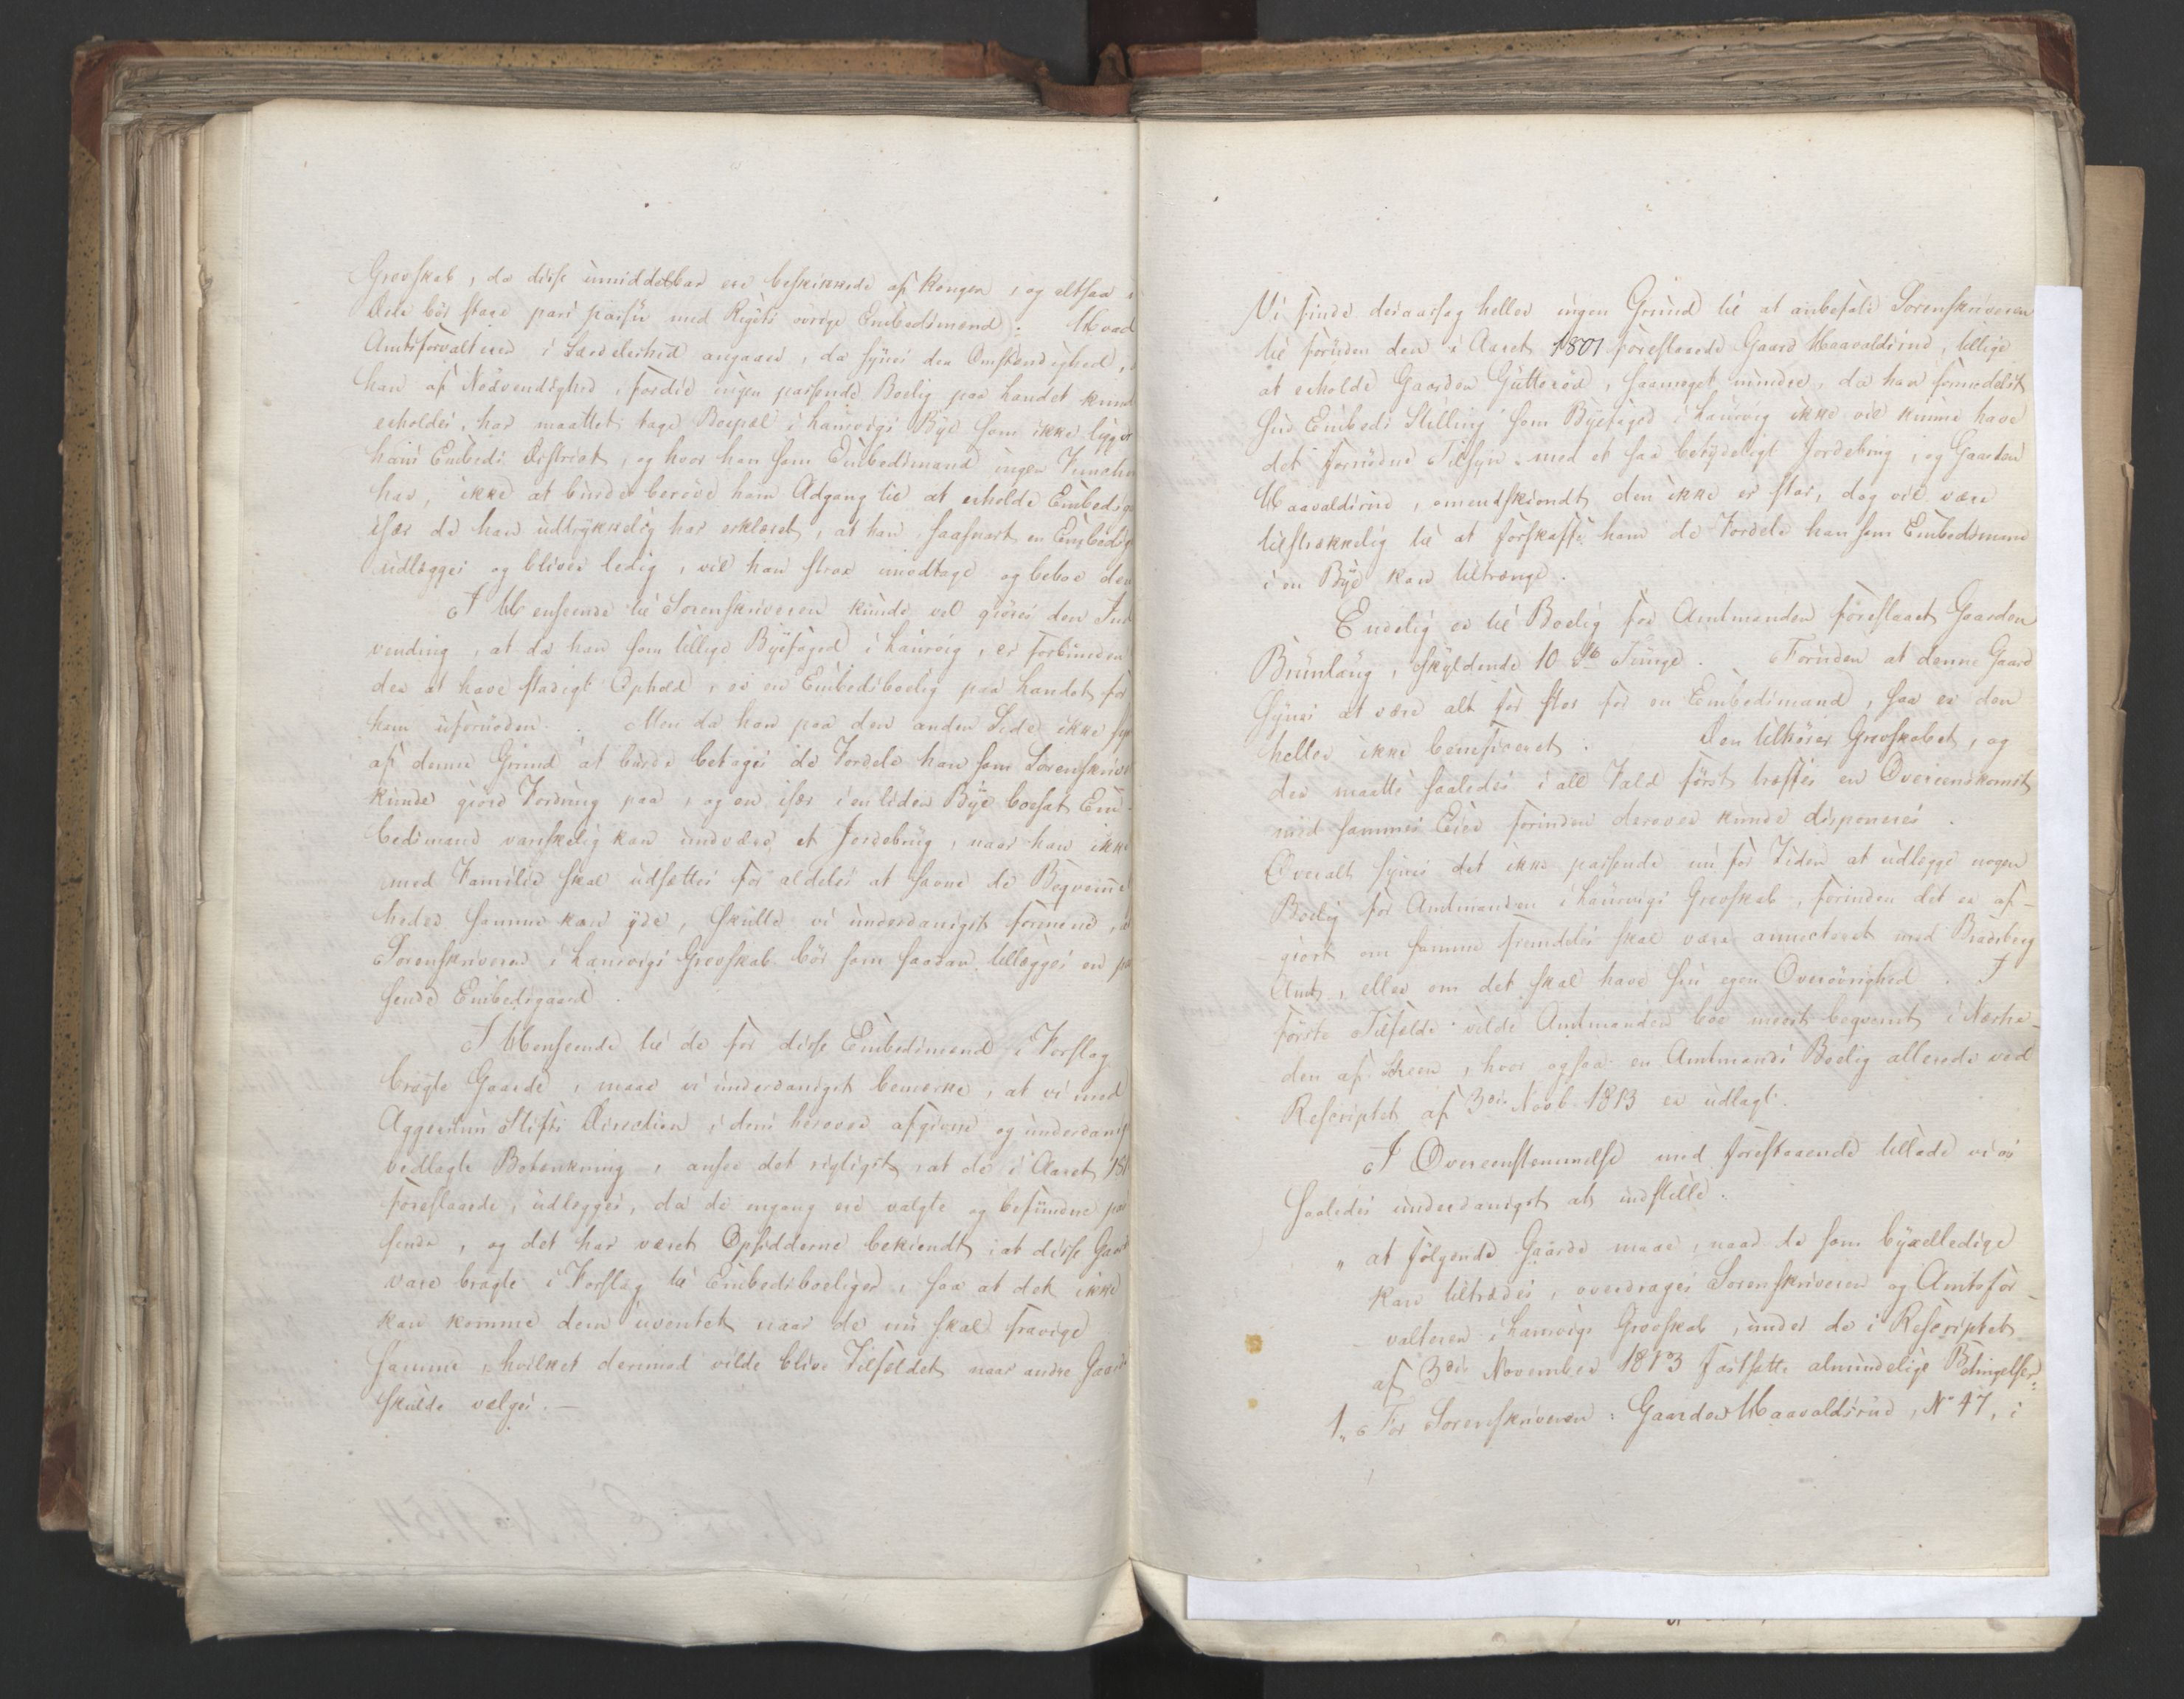 Grevskab, da disse umiddelbar ere beskikkede af Kongen, og altsaa i
Dele bör staae pari passu med Rigets övrige Embedsmænd. Hvad
Amtsforvalteren i Særdeleshed angaaer, da synes den Omstændighed,
han af Nödvendighed, fordie ingen passende Boelig paa Landet kund
erholdes, har maattet tage Boepæl i Laurvigs Bye som ikke ligger
hans Embeds District, og hvor han som Embedsmand ingen
har, ikke at burde beröve ham Adgang til at erholde Embedsg
især da han udtrykkelig har erklæret, at han saasnart en Embedsg
udlægges og bliver ledig, vil han strax modtage og beboe den
I Henseende til Sorenskriveren kunde vel giöres den Ind
vending, at da han som tillige Byefoged i Laurvig, er forbunden
der at have stadigt Ophold, er en Embedsboelig paa Landet for
ham ufornöden. Men da han paa den anden Side ikke syn
af denne Grund at burde betages de Fordele han som Sorenskriver
kunde giöre Fordring paa, og en især i en liden Bye boesat Em-
bedsmand vanskelig kan undvære et Jordebrug, naar han ikke
med Familie skal udsættes for aldeles at savne de Beqvemme
heder samme kan yde, skulle vi underdanigst formene, a
Sorenskriveren i Laurvigs Grevskab bör som saadan tillægges en pas
sende Embedsgaard.
I Henseende til de for disse Embedsmænd i Forslag
bragte Gaarde, maae vi underdanigst bemærke, at vi med
Aggershuus Stifts Direction, i dens herover afgivne og underdanigst
vedlagte Betænkning, ansee det rigtigst, at de i Aaret 180
foreslaaede, udlægges, da de engang ere valgte og befundne pas
sende, og det har været Opsidderne bekiendt, at disse Gaarde
vare bragte i Forslag til Embedsboeliger, saa at det ikke
kan komme dem uventet naar de nu skal fravige
samme, hvilket derimod vilde blive Tilfældet naar andre Gaarde
skulde vælges. —
Vi finde desaarsag heller ingen Grund til at anbefale Sorenskriveren
til foruden den i Aaret 1801 foreslaaede Gaard Haavaldsrud, tillige
at erholde Gaarden Gutteröd, saameget mindre, da han formedelst
sin Embeds Stilling som Byefoged i Laurvig ikke vil kunne have
det fornödne Tilsyn med et saa betydeligt Jordebrug, og Gaarden
Haavaldsrud, omendskiöndt den ikke er stor, dog vil være
tilstrækkelig til at forskaffe ham de Fordele han som Embedsmand
i en Bye kan tiltrænge.
Endelig er til Boelig for Amtmanden foreslaaet Gaarden
Brunlaug, skyldende 10 Tunge. Foruden at denne Gaard
synes at være alt for stor for en Embedsmand, saa er den
heller ikke beneficeret. Den tilhörer Grevskabet, og
der maatte saaledes i all Fald först træffes en Overeenskomst
med sammes Eier forinden derover kunde disponeres.
Overalt synes det ikke passende nu for Tiden at udlægge nogen
Boelig for Amtmanden i Laurvigs Grevskab, forinden det er af-
giort om samme fremdeles skal være annecteret med Bradsberg
Amt, eller om det skal have sin egen Overövrighed. I
förste Tilfælde vilde Amtmanden boe meest beqvemt i Nærhe-
den af Skeen, hvor ogsaa en Amtmands Boelig allerede ved
Rescriptet af 3die Novb. 1813 er udlagt.
I Overeenstemmelse med foreslaaende tillade vi os
saaledes underdanigst at indstille:
„at fölgende Gaarde maae, naar de som byxelledige
kan tiltrædes, overdrages Sorenskriveren og Amtsfor-
valteren i Laurvigs Grevskab, under de i Rescriptet
af 3die November 1813 fastsatte almindelige Betingelser:
1, For Sorenskriveren: Gaarden Haavaldsrud, No 47, i